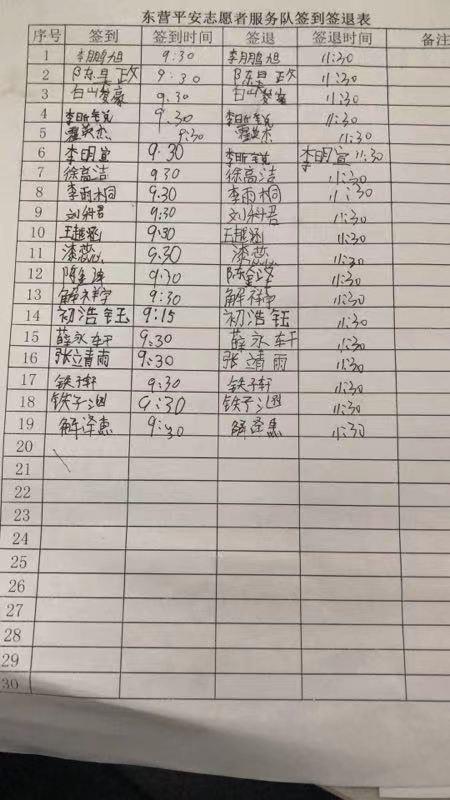 东营平安志愿者服务队签到签退表
序号 签到 签到时间 签退 签退时间 备注
1 李鹏旭 9:30 李鹏旭 11:30
2 陈昊政 9:30 陈昊政 11:30
3 白山 9:30 白山 11:30
4 李昕 9:30 李昕 11:30
5 9:30 11:30
6 李明宣 9:30 李昕 李明宣 11:30
7 徐高洁 9:30 徐高洁 11:30
8 李雨桐 9:30 李雨桐 11:30
9 刘科君 9:30 刘科君 11:30
10 王越涵 9:30 王越涵 11:30
11 漆蕊 9:30 漆蕊 11:30
12 陈 9:30 陈 11:30
13 解祥宇 9:30 解祥宇 11:30
14 初浩钰 9:15 初浩钰 11:30
15 薛永轩 9:30 薛永轩 11:30
16 张靖雨 9:30 张靖雨 11:30
17 铁子轩 9:30 铁子轩 11:30
18 铁子涵 9:30 铁子涵 11:30
19 解译惠 9:30 解译惠 11:30
20
21
22
23
24
25
26
27
28
29
30